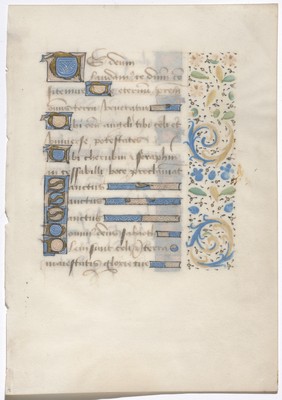 Te deum
laudamus te dñm co
fitemur Te eternū prem
omis terra veneratur
Tibi om̃s angeli tibi celi et
universe potestates
Tibi cherubin et seraphin
incessabili voce proclamāt
Sanctus
Sanctus
Sanctus
Dominus deus sabaoth
Pleni sunt celi et terra
maiestatis glorie tue